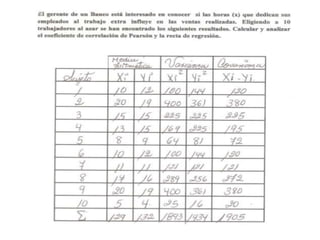 El gerente de un Banco está interesado en conocer si las horas (x) que dedican sus
empleados al trabajo extra influye en las ventas realizadas. Eligiendo a 10
trabajadores al azar se han encontrado los siguientes resultados. Calcular y analizar
el coeficiente de correlación de Pearsón y la recta de regresión.
Media Aritmética Varianza Covarianza
Sujeto Xi Yi Xi² Yi² Xi - Yi
1 10 12 100 144 120
2 20 19 400 361 380
3 15 15 225 225 225
4 13 15 169 225 195
5 8 9 64 81 72
6 10 12 100 144 120
7 11 11 121 121 121
8 17 16 289 256 272
9 20 19 400 361 380
10 5 4 25 16 20
Σ 129 132 1893 1934 1905